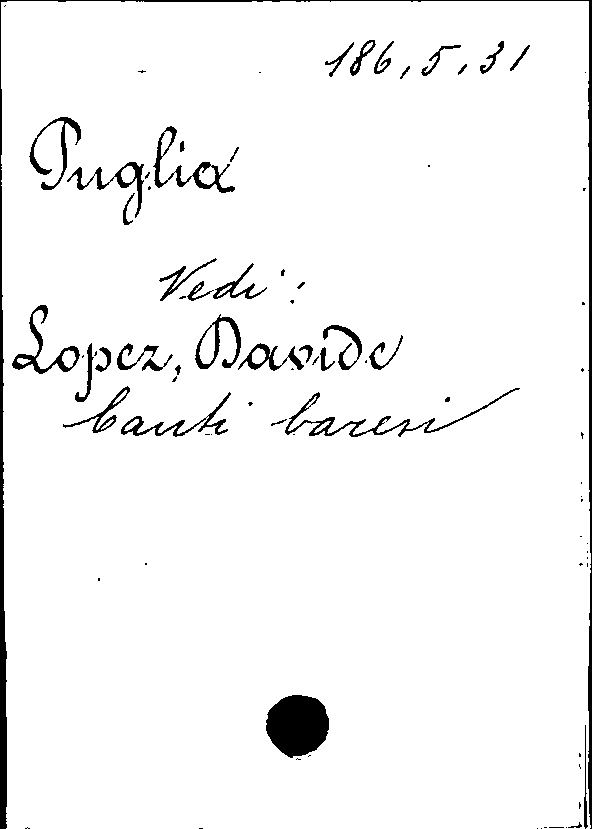 186,5,31
Puglia
Vedi:
Lopez, Davide
Canti baresi